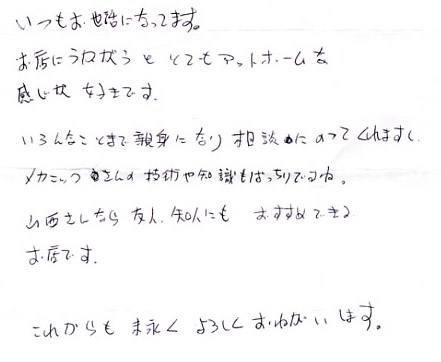 いつもお世話になってます。
お店にうかがうと とてもアットホームな
感じが 好きです。
いろんなことまで親身になり 相談にのってくれますし
メカニックさんの技術や知識もばっちりですね。
山西さんなら友人、知人にも おすすめできる
お店です。
これからも末永く よろしくおねがいします。